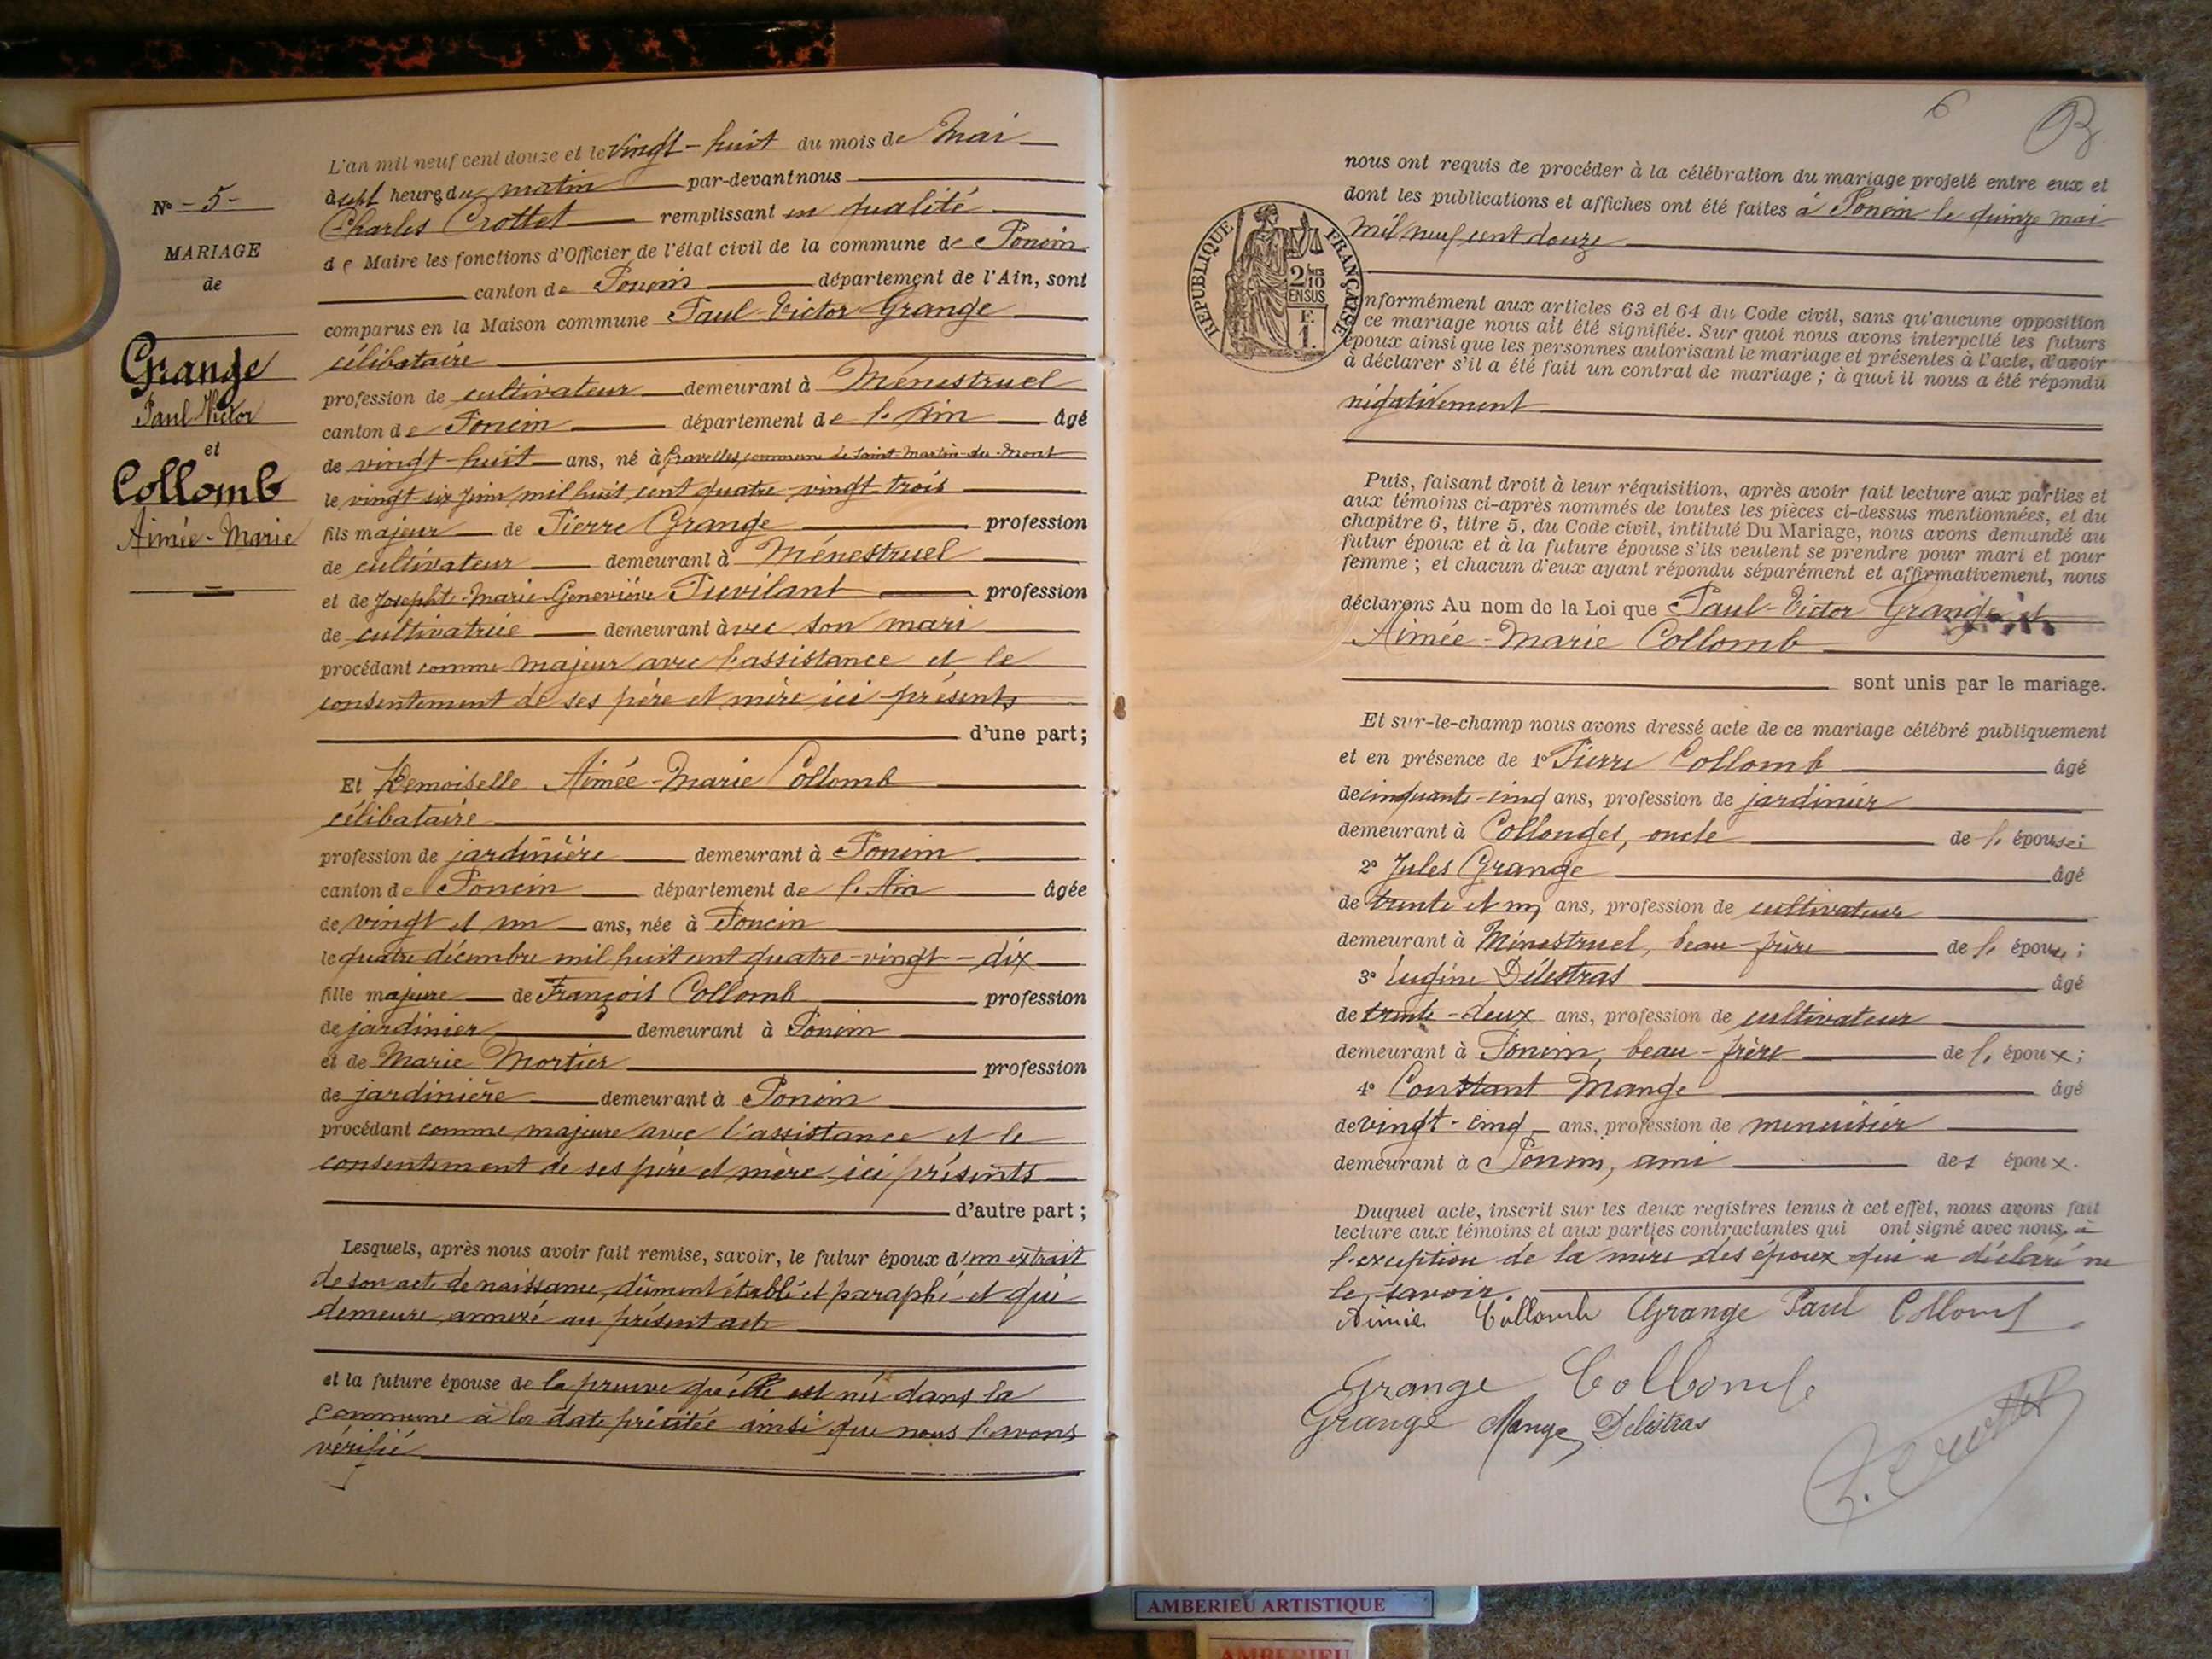 N° - 5 -
MARIAGE
de
Grange
Paul Victor
et
Collomb
Aimée - Marie
L'an mil neuf cent douze et le vingt - huit du mois de Mai
à sept heures du matin par-devant nous
Charles Crottet remplissant en qualité
de Maire les fonctions d'Officier de l'état civil de la commune de Poncin
canton de Poncin département de l'Ain, sont
comparus en la Maison commune Paul Victor Grange
célibataire
profession de cultivateur demeurant à Ménestruel
canton de Poncin département de l'Ain âgé
de vingt-huit ans, né à Gravelles, commune de Saint-Martin-du-Mont
le vingt six juin mil huit cent quatre-vingt-trois
fils majeur de Pierre Grange profession
de cultivateur demeurant à Ménestruel
et de Josephte-Marie-Geneviève Puvilant profession
de cultivatrice demeurant avec son mari
procédant comme majeur avec l'assistance et le
consentement de ses père et mère ici présents
d'une part;
Et Demoiselle Aimée-Marie Collomb
célibataire
profession de jardinière demeurant à Poncin
canton de Poncin département de l'Ain âgée
de vingt et un ans, née à Poncin
le quatre décembre mil huit cent quatre-vingt-dix
fille majeure de François Collomb profession
de jardinier demeurant à Poncin
et de Marie Mortier profession
de jardinière demeurant à Poncin
procédant comme majeure avec l'assistance et le
consentement de ses père et mère ici présents
d'autre part;
Lesquels, après nous avoir fait remise, savoir, le futur époux d'un extrait
de son acte de naissance, dûment établi et paraphé et qui
demeure annexé au présent acte
et la future épouse de la preuve qu'elle est née dans la
commune à la date précitée ainsi que nous l'avons
vérifié
6
nous ont requis de procéder à la célébration du mariage projeté entre eux et
dont les publications et affiches ont été faites à Poncin le quinze mai
mil neuf cent douze
RÉPUBLIQUE FRANÇAISE
2/10 EN SUS
F. 1.
nformément aux articles 63 et 64 du Code civil, sans qu'aucune opposition
ce mariage nous ait été signifiée. Sur quoi nous avons interpellé les futurs
époux ainsi que les personnes autorisant le mariage et présentes à l'acte, d'avoir
à déclarer s'il a été fait un contrat de mariage ; à quoi il nous a été répondu
négativement
Puis, faisant droit à leur réquisition, après avoir fait lecture aux parties et
aux témoins ci-après nommés de toutes les pièces ci-dessus mentionnées, et du
chapitre 6, titre 5, du Code civil, intitulé Du Mariage, nous avons demandé au
futur époux et à la future épouse s'ils veulent se prendre pour mari et pour
femme ; et chacun d'eux ayant répondu séparément et affirmativement, nous
déclarons Au nom de la Loi que Paul-Victor Grange et
Aimée-Marie Collomb
sont unis par le mariage.
Et sur-le-champ nous avons dressé acte de ce mariage célébré publiquement
et en présence de 1° Pierre Collomb âgé
de cinquante-cinq ans, profession de jardinier
demeurant à Collonges, oncle de l'épouse;
2° Jules Grange âgé
de trente et un ans, profession de cultivateur
demeurant à Ménestruel, beau-frère de l'épouse;
3° Eugène Délestras âgé
de trente-deux ans, profession de cultivateur
demeurant à Poncin, beau-frère de l'époux;
4° Constant Mange âgé
de vingt-cinq ans, profession de menuisier
demeurant à Poncin, ami des époux.
Duquel acte, inscrit sur les deux registres tenus à cet effet, nous avons fait
lecture aux témoins et aux parties contractantes qui ont signé avec nous, à
l'exception de la mère des époux qui a déclaré ne
le savoir.
Aimée Collomb Grange Paul Collomb
Grange Collomb
Grange Mange Delestras
C. Crottet
AMBERIEU ARTISTIQUE
AMBERIEU